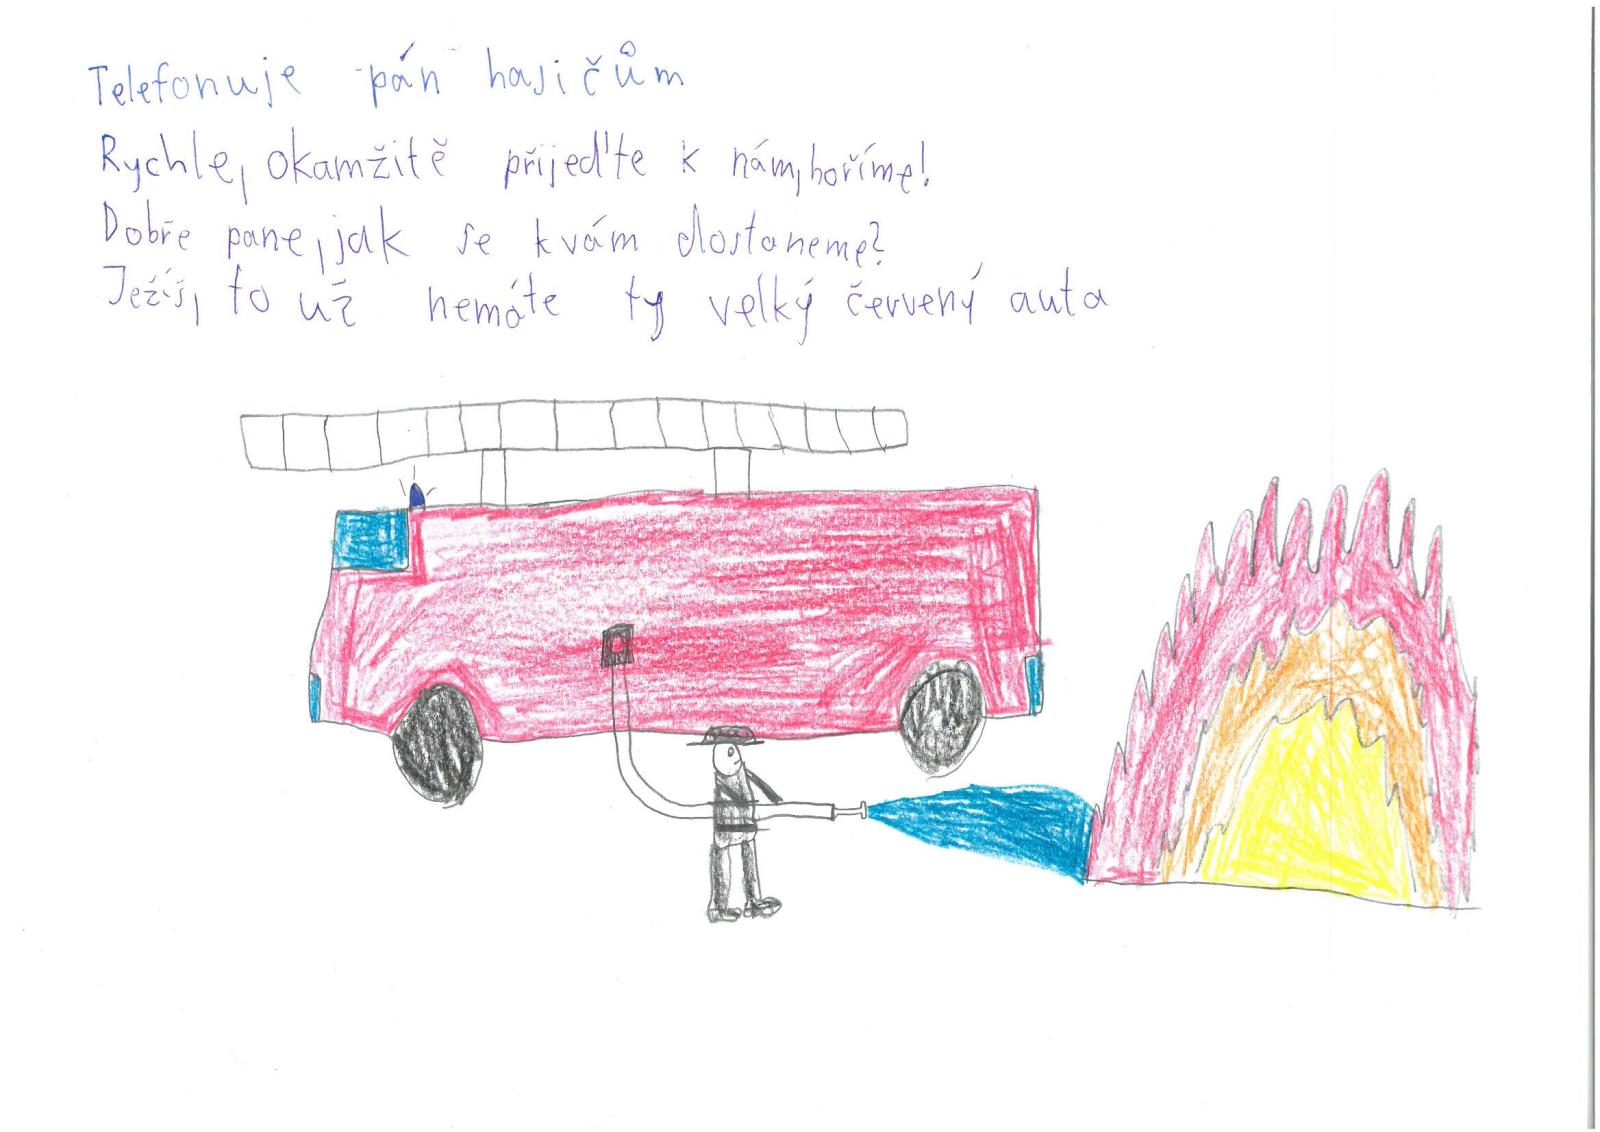 Telefonuje pán hasičům
Rychle, okamžitě přijeďte k nám, hoříme!
Dobře pane, jak se k vám dostaneme?
Ježíš, to už nemáte ty velký červený auta